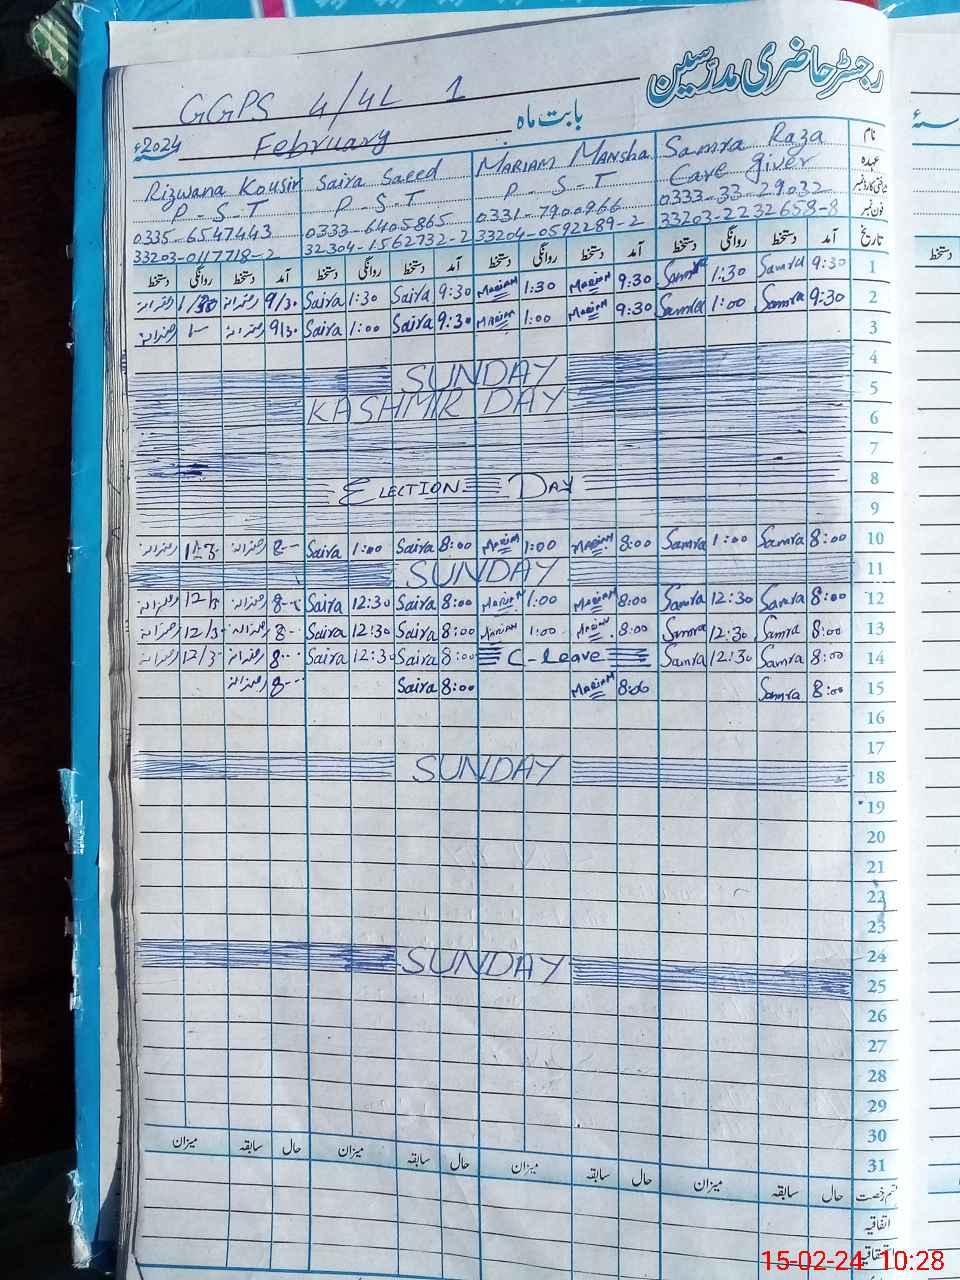 رجسٹر حاضری مدرسین
GGPS 4/4L 1
بابت ماہ
February
2024ء
نام Samra Raza MARIAM MANSHA Saira Saeed Rizwana Kousir
عہدہ Care Giver P-S-T P-S-T P-S-T
0333-33-29032 0331-7900966 0333-6405865 0335-6547443
فون نمبر 33203-2232658-8 33204-0592289-2 32304-1562732-2 33203-0117718-2
تاریخ آمد دستخط روانگی دستخط آمد دستخط روانگی دستخط آمد دستخط روانگی دستخط آمد دستخط روانگی دستخط
1 9:30 Samra 1:30 Samra 9:30 MARIAM 1:30 MARIAM 9:30 Saira 1:30 Saira 9/30 رضوانہ رضوانہ
2 9:30 Samra 1:00 Samra 9:30 MARIAM 1:00 MARIAM 9:30 Saira 1:00 Saira 9/30 رضوانہ رضوانہ
3
4 SUNDAY
5 KASHMIR DAY
6
7
8 ELECTION DAY
9
10 8:00 Samra 1:00 Samra 8:00 MARIAM 1:00 MARIAM 8:00 Saira 1:00 Saira رضوانہ رضوانہ
11 SUNDAY
12 8:00 Samra 12:30 Samra 8:00 MARIAM 1:00 MARIAM 8:00 Saira 12:30 Saira رضوانہ رضوانہ
13 8:00 Samra 12:30 Samra 8:00 MARIAM 1:00 MARIAM 8:00 Saira 12:30 Saira رضوانہ 12/3 رضوانہ
14 8:00 Samra 12:30 Samra C-leave 8:00 Saira 12:30 Saira رضوانہ 12/3 رضوانہ
15 8:00 Samra 8:00 MARIAM 8:00 Saira رضوانہ
16
17
18 SUNDAY
19
20
21
22
23
24
25 SUNDAY
26
27
28
29
30
31
حال سابقہ میزان حال سابقہ میزان حال سابقہ میزان حال سابقہ میزان
اتفاقیہ
دستخط
15-02-24 10:28